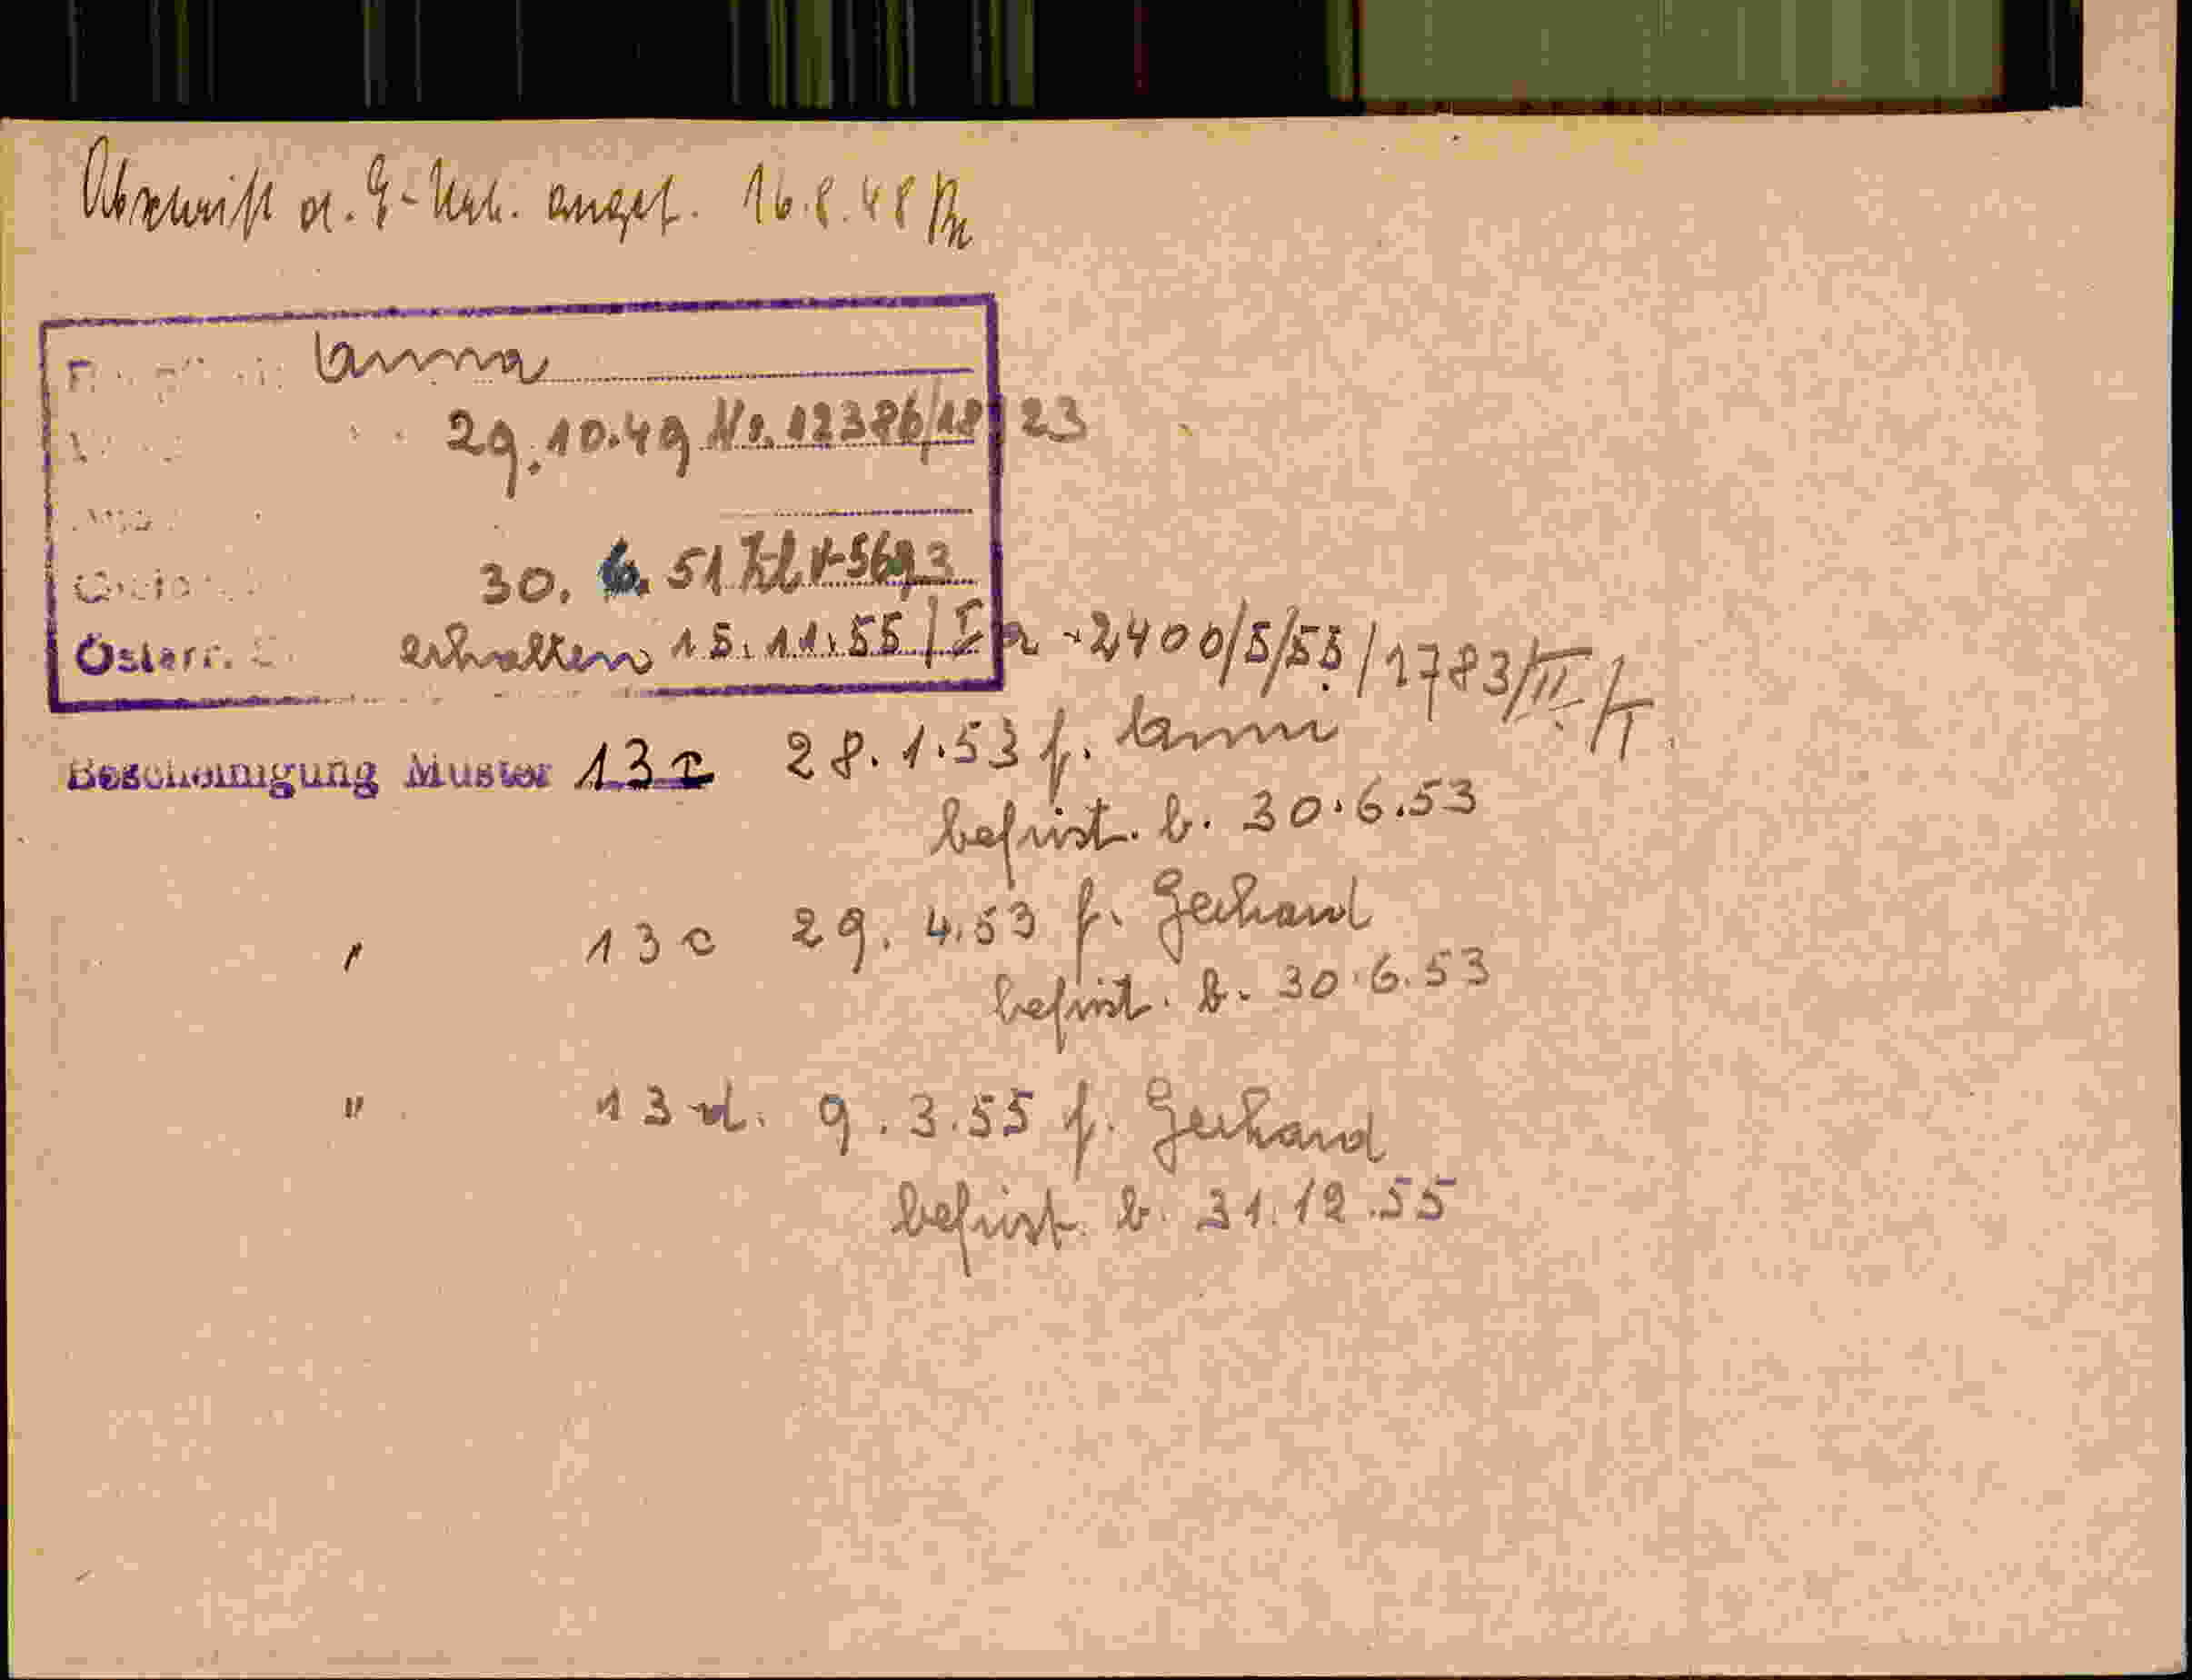 Abschrift d. G-Urk. angef. 16.8.48
Anna
29.10.49 No. 12386/18/23
30. 6. 51 V-5693
Österr. erhalten 15.11.55/I a -2400/5/55/1783/II/I.
Bescheinigung Muster 13c 28.1.53 f. Anni
befrist. b. 30.6.53
" 13c 29. 4.53 f. Gerhard
befrist. b. 30.6.53
" 13 d. 9.3.55 f. Gerhard
befrist. b. 31.12.55